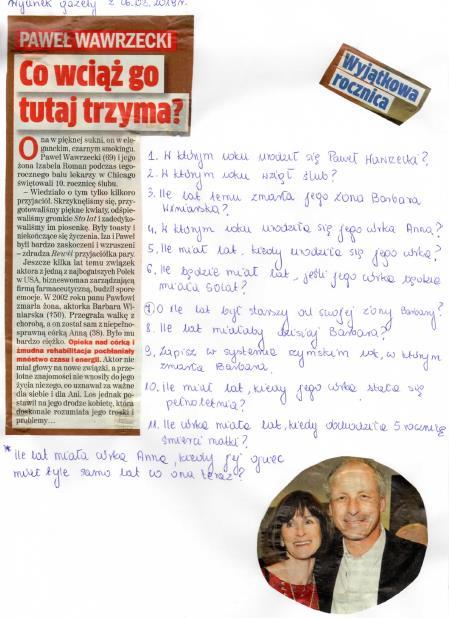 Wycinek gazety z 06.02.2019r.
PAWEŁ WAWRZECKI
Co wciąż go
tutaj trzyma?
Wyjątkowa
rocznica
Ona w pięknej sukni, on w ele-
ganckim, czarnym smokingu.
Paweł Wawrzecki (69) i jego
żona Izabela Roman podczas tego-
rocznego balu lekarzy w Chicago
świętowali 10. rocznicę ślubu.
– Wiedziało o tym tylko kilkoro
przyjaciół. Skrzyknęliśmy się, przy-
gotowaliśmy piękne kwiaty, odśpie-
waliśmy gromkie Sto lat i zadedyko-
waliśmy im piosenkę. Były toasty i
niekończące się życzenia. Iza i Paweł
byli bardzo zaskoczeni i wzruszeni
– zdradza Rewii przyjaciółka pary.
Jeszcze kilka lat temu związek
aktora z jedną z najbogatszych Polek
w USA, bizneswoman zarządzającą
firmą farmaceutyczną, budził spore
emocje. W 2002 roku panu Pawłowi
zmarła żona, aktorka Barbara Wi-
niarska (†50). Przegrała walkę z
chorobą, a on został sam z niepełno-
sprawną córką Anną (38). Było mu
bardzo ciężko. Opieka nad córką i
żmudna rehabilitacja pochłaniały
mnóstwo czasu i energii. Aktor nie
miał głowy na nowe związki, a prze-
lotne znajomości nie wnosiły do jego
życia niczego, co uznawał za ważne
dla siebie i dla Ani. Los jednak po-
stawił na jego drodze kobietę, która
doskonale rozumiała jego troski i
problemy…
1. W którym roku urodził się Paweł Wawrzecki?
2. W którym roku wziął ślub?
3. Ile lat temu zmarła jego żona Barbara
Winiarska?
4. W którym roku urodziła się jego córka Anna?
5. Ile miał lat, kiedy urodziła się jego córka?
6. Ile będzie miał lat, jeśli jego córka będzie
miała 50 lat?
7. O ile lat był starszy od swojej żony Barbary?
8. Ile miałaby dzisiaj Barbara?
9. Zapisz w systemie rzymskim rok, w którym
zmarła Barbara.
10. Ile miał lat, kiedy jego córka stała się
pełnoletnia?
11. Ile córka miała lat, kiedy dochodziła 5 rocznica
śmierci matki?
* Ile lat miała córka Anna, kiedy jej ojciec
miał tyle samo lat co ona teraz?